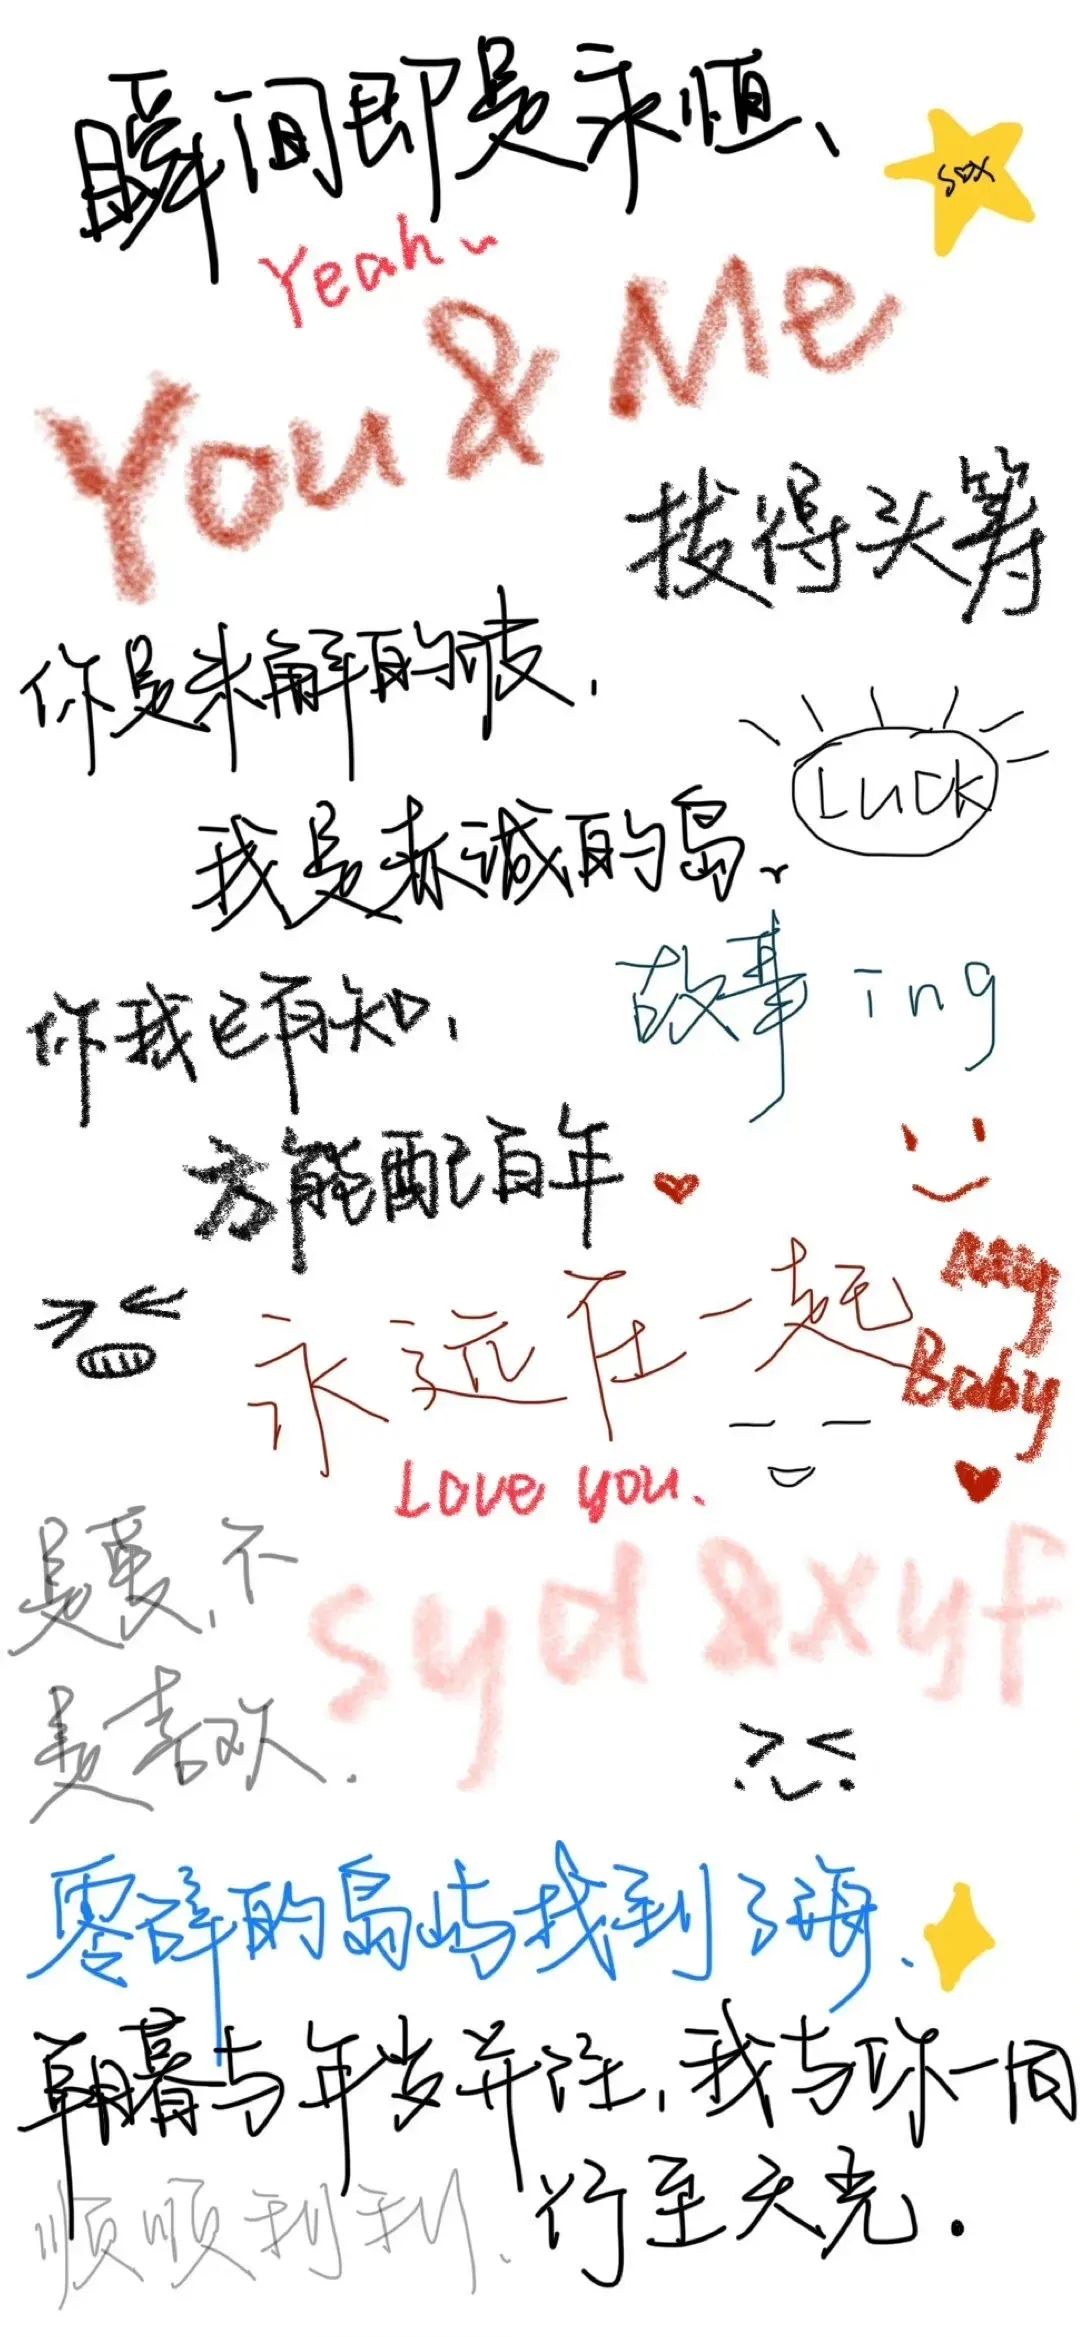 瞬间即是永恒、
sdx
Yeah~
You & Me
拔得头筹
你是未解的波,
Luck
我是赤诚的岛、
故事 ing
你我已有知,
方能配百年
My
Baby
永远在一起
Love you.
是爱,不
是喜欢.
syd&xyf
零碎的岛屿找到了海、
朝暮与年岁并往,我与你一同
行至天光.
顺顺利利、